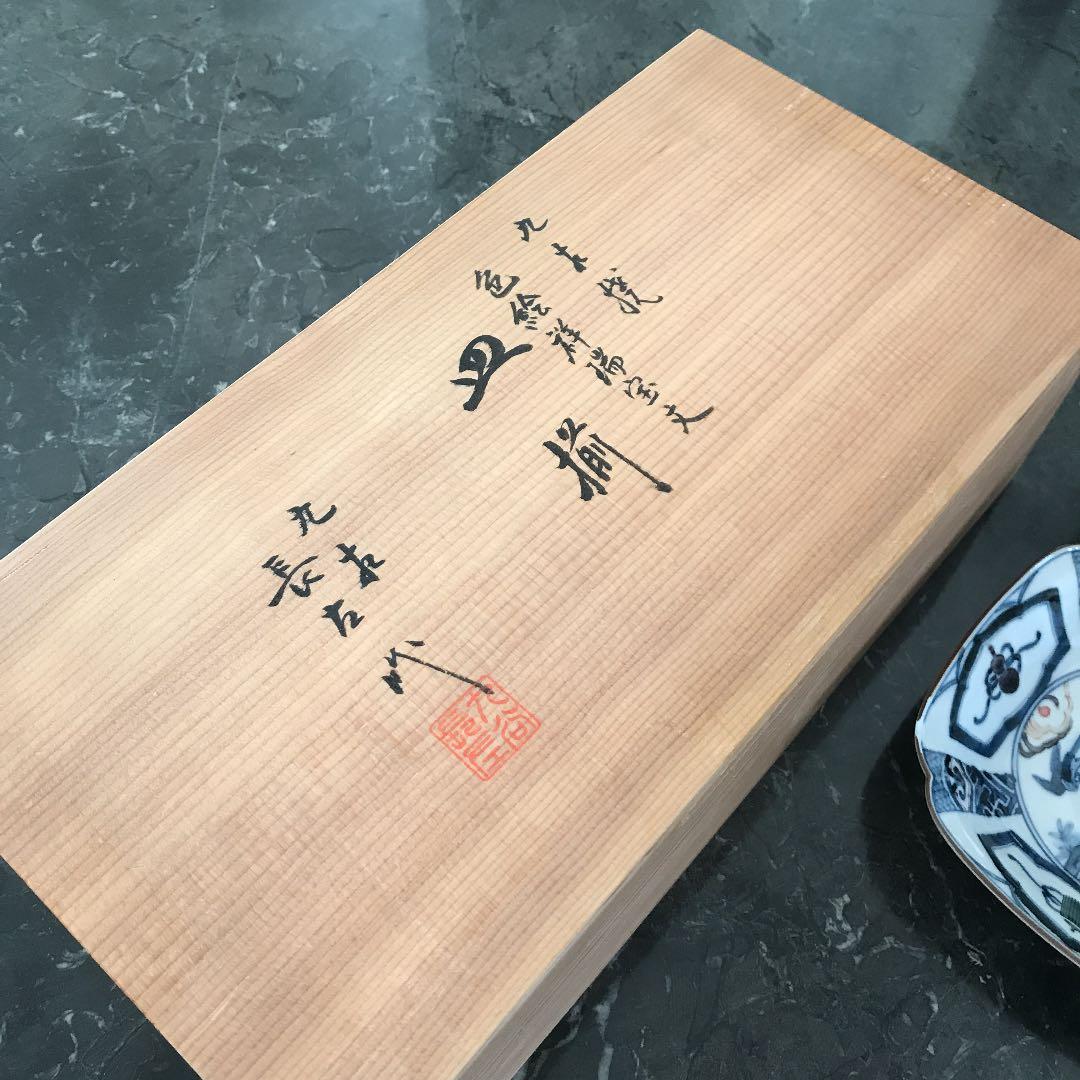 九谷焼
色絵祥瑞宝文
皿揃
九谷
長右作